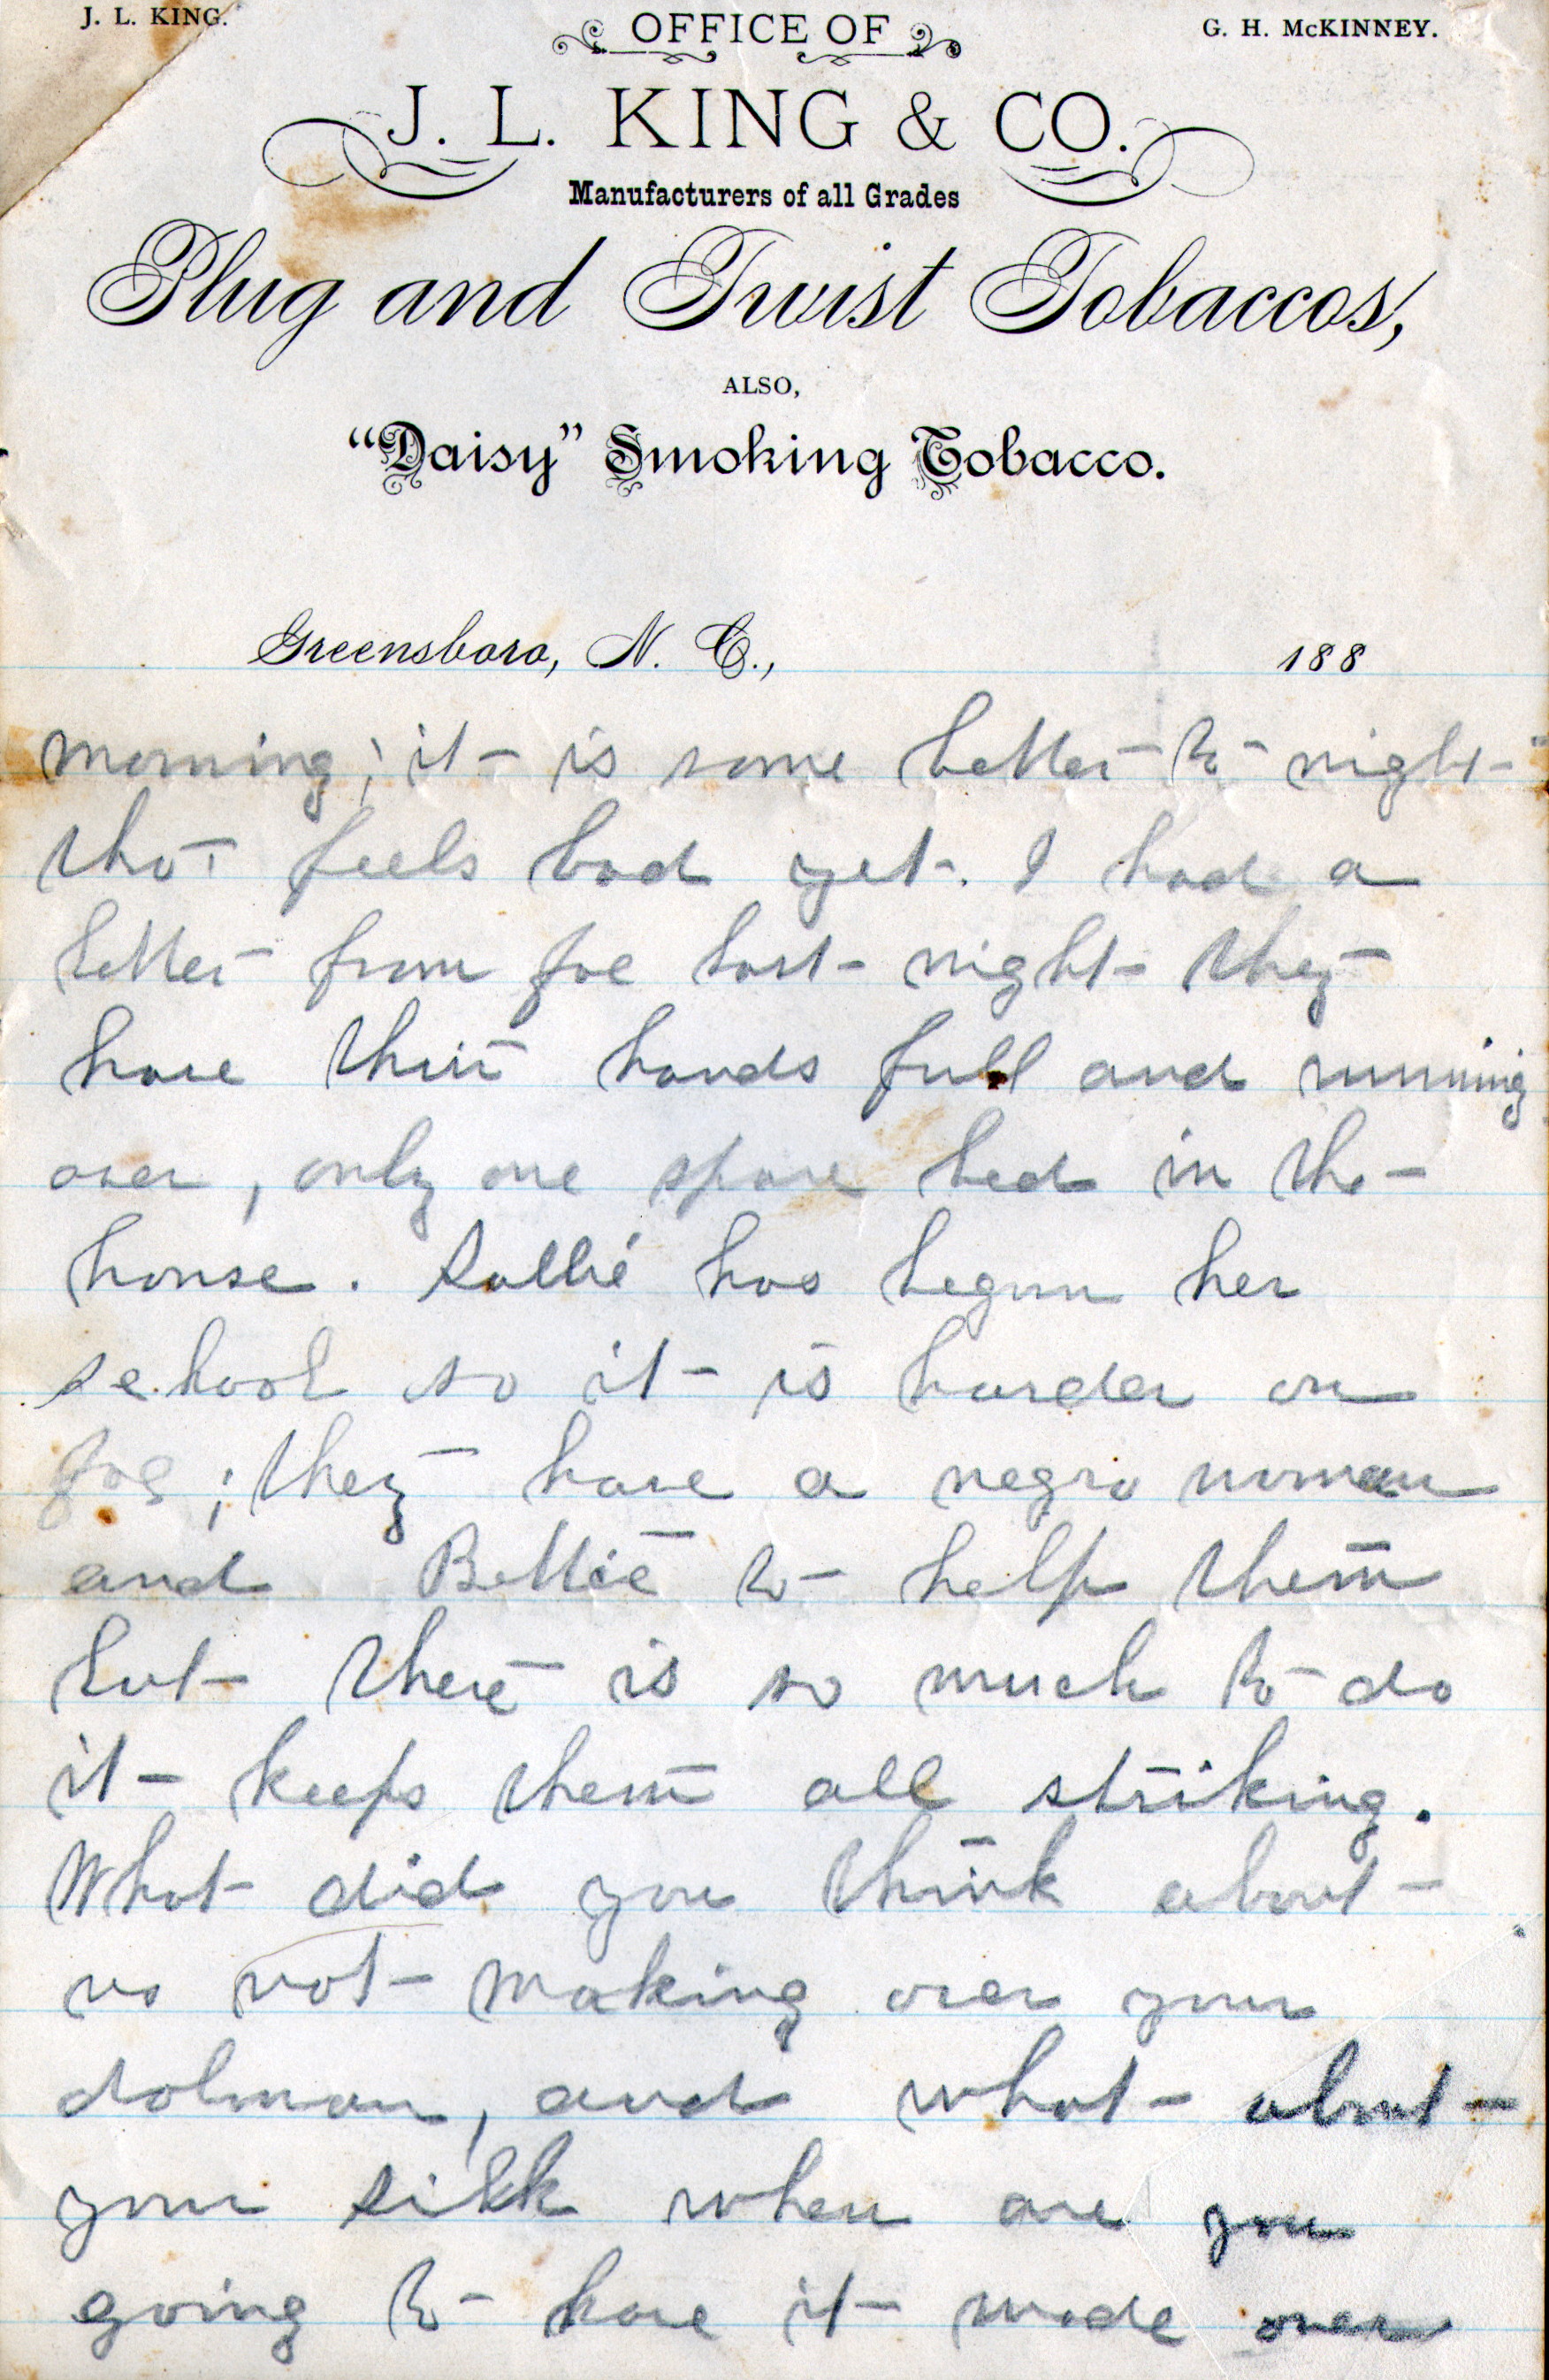 J. L. KING.
OFFICE OF
G. H. McKINNEY.
J. L. KING & CO.
Manufacturers of all Grades
Plug and Twist Tobaccos,
ALSO,
"Daisy" Smoking Tobacco.
Greensboro, N. C., 188
morning; it is some better to night
tho feels bad yet. I had a
letter from Joe last night they
have thier hands full and running
over, only one spare bed in the
house. Sallie has begun her
school so it is harder on
Joe; they have a negro woman
and Bettie to help them
but there is so much to do
it keeps them all striking.
What did you think about
us not making over your
dolman, and what about
your silk when are you
going to have it made over